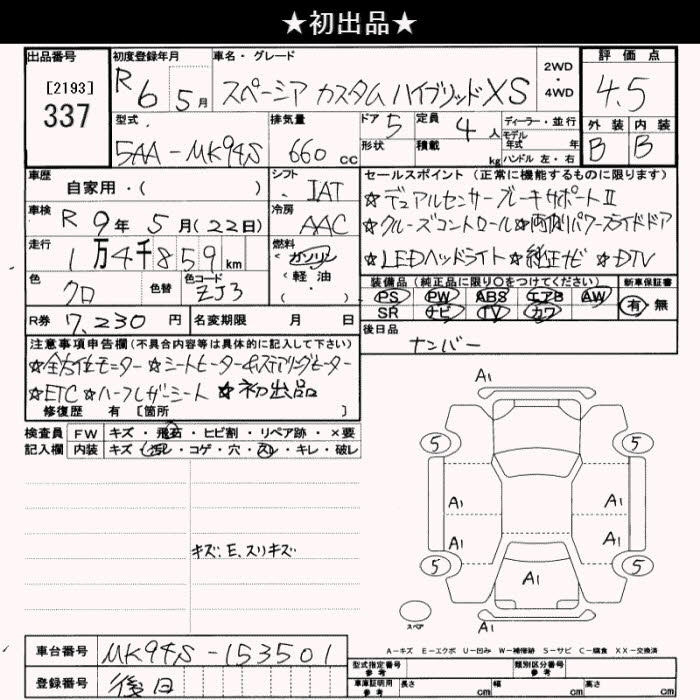 ★初出品★
出品番号 初度登録年月 車名・グレード 評価点
[2193]
337
R6 5月 スペーシア カスタム ハイブリッド XS 2WD・4WD 4.5
型式 排気量 ドア 5 定員 4人 ディーラー・並行 外装 内装
5AA-MK94S 660cc 形状 積載 kg モデル年式 年 B B
ハンドル 左・右
車歴 シフト セールスポイント(正常に機能するものに限ります)
自家用・( ) IAT ☆デュアルセンサーブレーキサポートⅡ
車検 R9年5月(22日) 冷房 AAC ☆クルーズコントロール☆両側パワースライドドア
走行 1万4千859km 燃料 ガソリン ☆LEDヘッドライト ☆純正ナビ ☆DTV
(軽油・)
色 クロ 色替 色コード ZJ3 装備品(純正品に限り○をつけてください) 新車保証書
PS PW ABS エアB AW 有 無
SR ナビ TV カワ
R券 7,230円 名変期限 月 日 後日品
ナンバー
注意事項申告欄(不具合内容等は具体的に記入して下さい)
☆全方位モニター ☆シートヒーター&ステアリングヒーター
☆ETC ☆ハーフレザーシート ☆初出品
修復歴 有[箇所 ]
検査員 FW キズ・飛石・ヒビ割・リペア跡・×要
記入欄 内装 キズ・汚レ・コゲ・穴・スレ・キレ・破レ
キズ:E、スリキズ
A1
5 5
A1
A1
A1 A1
5 5
A1
スペア A1
A-キズ E-エクボ U-凹み W-補修跡 S-サビ C-腐食 XX-交換済
車台番号 MK94S-153501
登録番号 後日
型式指定番号 参考 類別区分番号 参考
車庫証明用 参考 長さ cm 幅 cm 高さ cm